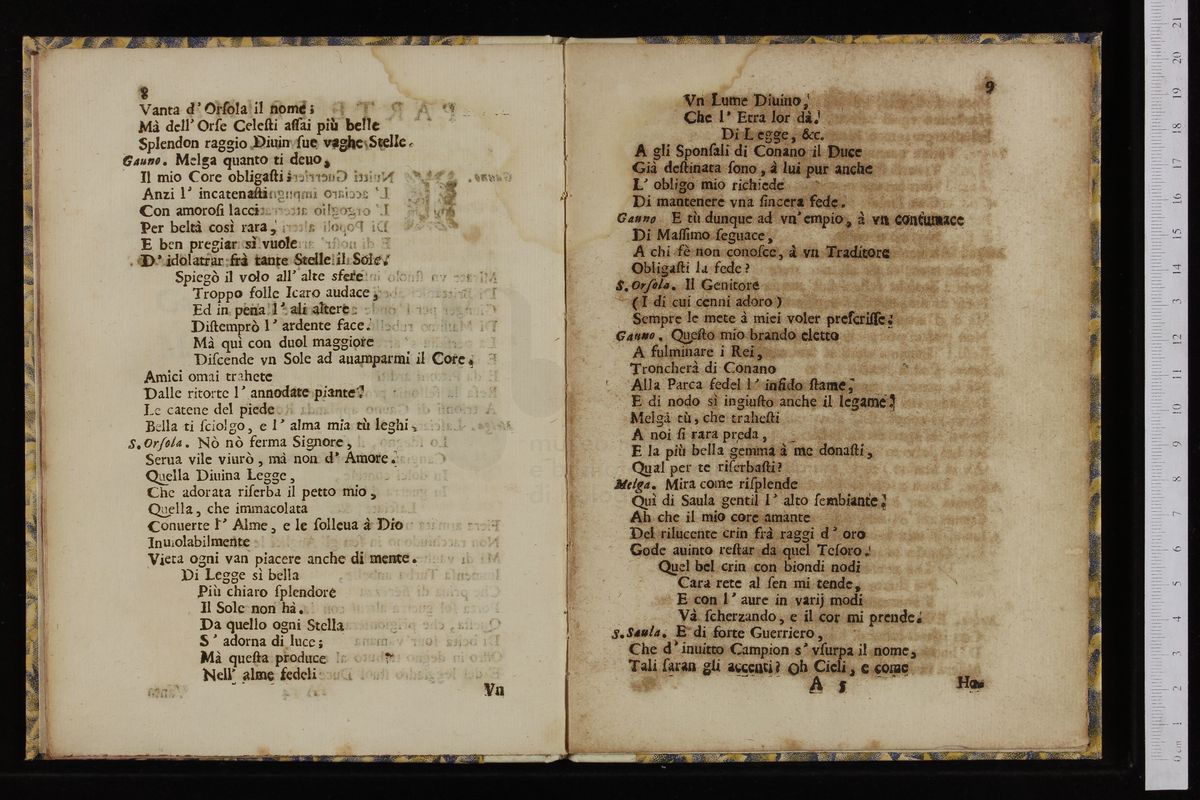 8
Vanta d' Orſola il nome;
Mà dell' Orſe Celeſti aſſai più belle
Splendon raggio Diuin ſue vaghe Stelle.
Gauno. Melga quanto ti deuo,
Il mio Core obligaſti;
Anzi l' incatenaſti
Con amoroſi lacci
Per beltà così rara,
E ben pregiar sì vuole
D' idolatrar frà tante Stelle il Sole.
Spiegò il volo all' alte sfere
Troppo folle Icaro audace,
Ed in pena l' ali altere
Diſtemprò l' ardente face.
Mà quì con duol maggiore
Diſcende vn Sole ad auamparmi il Core.
Amici omai trahete
Dalle ritorte l' annodate piante!
Le catene del piede
Bella ti ſciolgo, e l' alma mia tù leghi.
S. Orſola. Nò nò ferma Signore,
Serua vile viurò, mà non d' Amore.
Quella Diuina Legge,
Che adorata riſerba il petto mio,
Quella, che immacolata
Conuerte l' Alme, e le ſolleua à Dio
Inuiolabilmente
Vieta ogni van piacere anche di mente.
Di Legge sì bella
Più chiaro ſplendore
Il Sole non hà.
Da quello ogni Stella
S' adorna di luce;
Mà queſta produce
Nell' alme fedeli
Vn
9
Vn Lume Diuino,
Che l' Etra lor dà.
Di L egge, &c.
A gli Sponſali di Conano il Duce
Già deſtinata ſono, à lui pur anche
L' obligo mio richiede
Di mantenere vna ſincera fede.
Gauno E tù dunque ad vn' empio, à vn contumace
Di Maſſimo ſeguace,
A chi fè non conoſce, à vn Traditore
Obligaſti la fede?
S. Orſola. Il Genitore
(I di cui cenni adoro)
Sempre le mete à miei voler preſcriſſe:
Gauno. Queſto mio brando eletto
A fulminare i Rei,
Troncherà di Conano
Alla Parca fedel l' infido ſtame,
E di nodo sì ingiuſto anche il legame!
Melgà tù, che traheſti
A noi ſi rara preda,
E la più bella gemma à me donaſti,
Qual per te riſerbaſti?
Melga. Mira come riſplende
Quì di Saula gentil l' alto ſembiante!
Ah che il mio core amante
Del rilucente crin frà raggi d' oro
Gode auinto reſtar da quel Teſoro.
Quel bel crin con biondi nodi
Cara rete al ſen mi tende,
E con l' aure in varij modi
Và ſcherzando, e il cor mi prende.
S. Saula. E di forte Guerriero,
Che d' inuitto Campion s' vſurpa il nome,
Tali ſaran gli accenti? Oh Cieli, e come
A 5